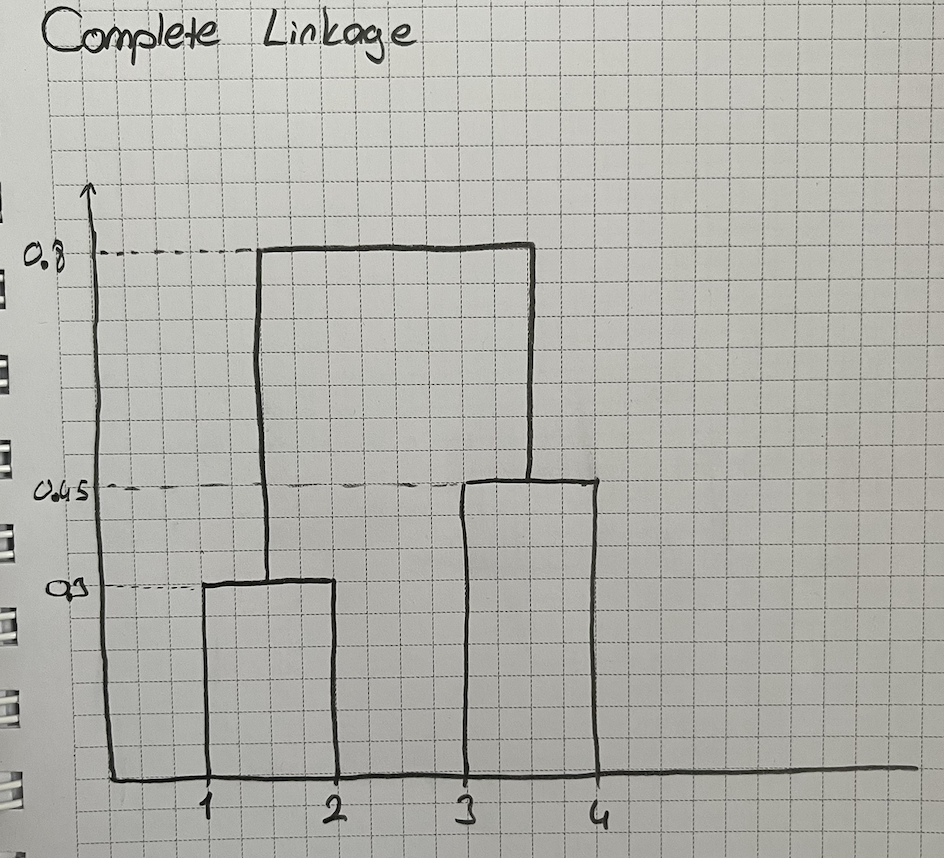 Complete Linkage
0.8
0.45
0.3
1 2 3 4